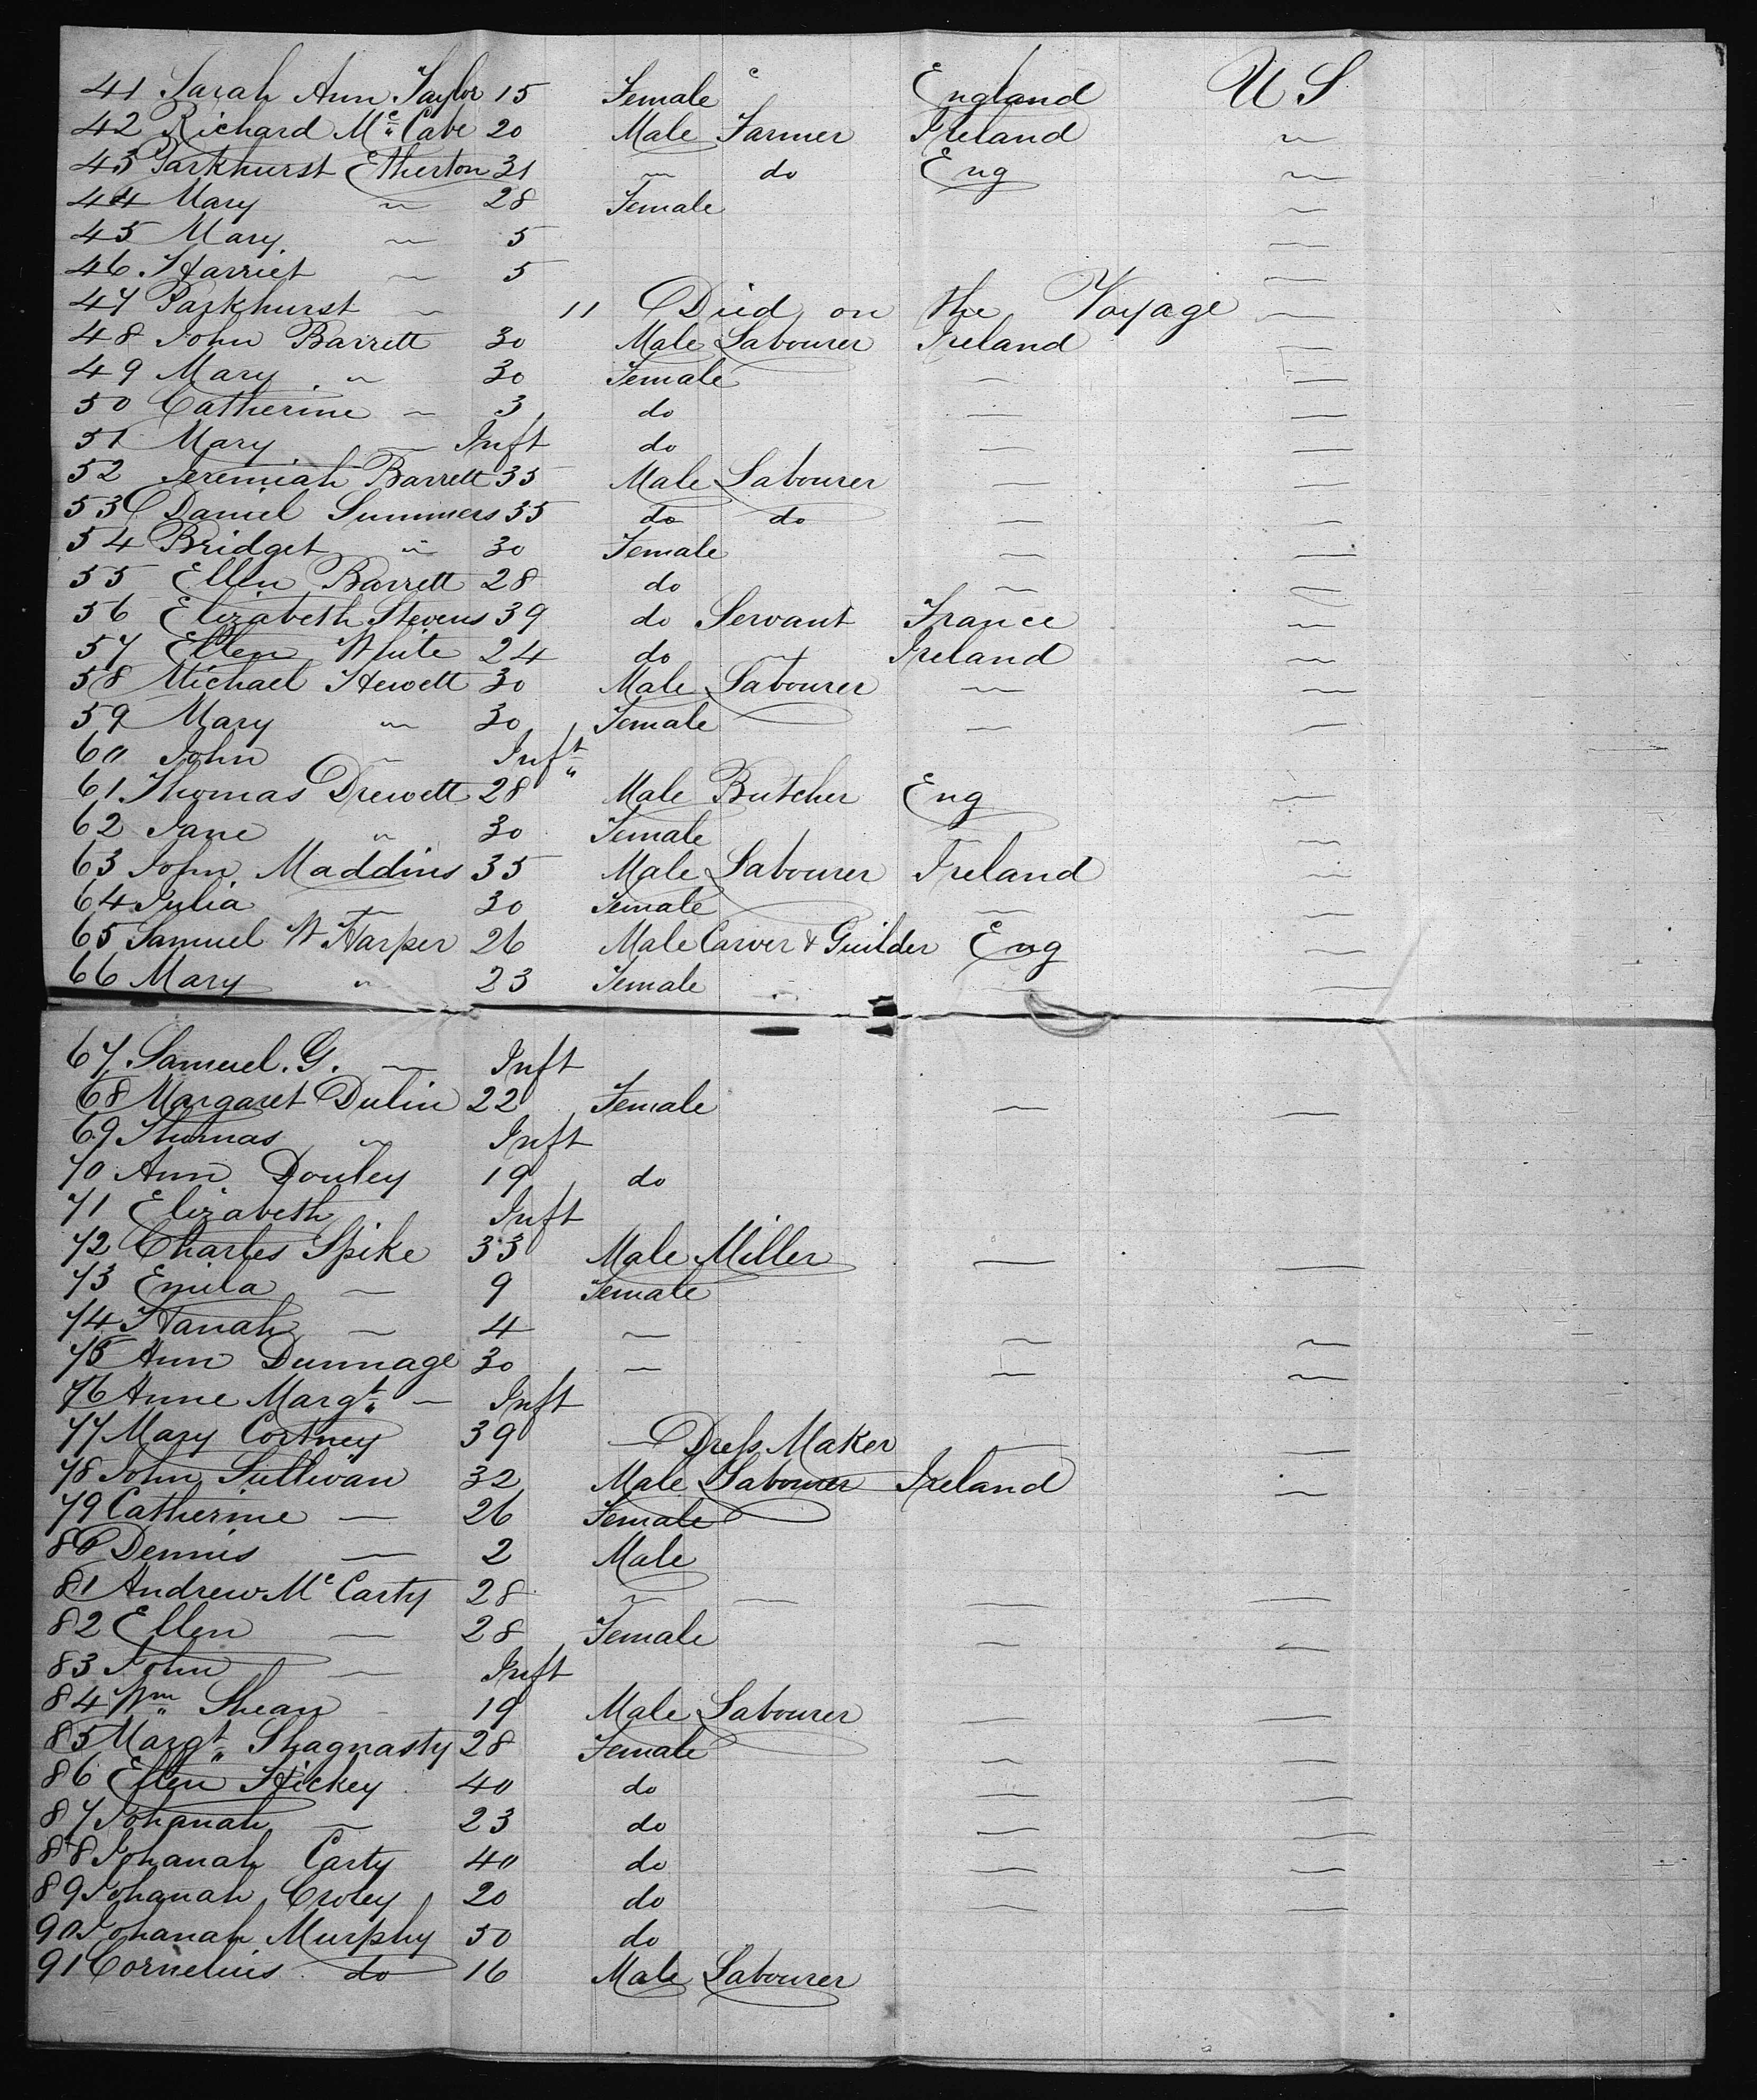 41 Sarah Ann Taylor 15 Female England U S
42 Richard Mc Cabe 20 Male Farmer Ireland "
43 Parkhurst Etherton 31 " do Eng "
44 Mary " 28 Female "
45 Mary " 5 "
46 Harriet " 5 "
47 Parkhurst " 11 Died on the Voyage "
48 John Barrett 30 Male Labourer Ireland "
49 Mary " 30 Female " "
50 Catherine " 3 do " "
51 Mary " Inft do " "
52 Jeremiah Barrett 35 Male Labourer " "
53 Daniel Summers 35 do do " "
54 Bridget " 30 Female " "
55 Ellen Barrett 28 do " "
56 Elizabeth Stevens 39 do Servant France "
57 Ellen White 24 do " Ireland "
58 Michael Hewett 30 Male Labourer " "
59 Mary " 30 Female " "
60 John " Inft
61 Thomas Drewett 28 Male Butcher Eng "
62 Jane " 30 Female "
63 John Maddins 35 Male Labourer Ireland "
64 Julia " 30 Female " "
65 Samuel W Harper 26 Male Carver & Guilder Eng "
66 Mary " 23 Female " "
67 Samuel. G. " Inft
68 Margaret Dulin 22 Female " "
69 Thomas " Inft
70 Ann Douley 19 do
71 Elizabeth Inft
72 Charles Spike 33 Male Miller " "
73 Emila " 9 Female
74 Hanah " 4 " " "
75 Ann Dunnage 30 " " "
76 Anne Margt " Inft
77 Mary Cortney 39 " Dress Maker " "
78 John Sullivan 32 Male Labourer Ireland "
79 Catherine " 26 Female
80 Dennis " 2 Male
81 Andrew Mc Carty 28 " " " "
82 Ellen " 28 Female " "
83 John " Inft
84 Wm Shean 19 Male Labourer " "
85 Margt Shagnasty 28 Female " "
86 Ellen Hickey 40 do " "
87 Johanah " 23 do " "
88 Johanah Carty 40 do " "
89 Johanah Croley 20 do " "
90 Johanah Murphy 50 do
91 Cornelius do 16 Male Labourer